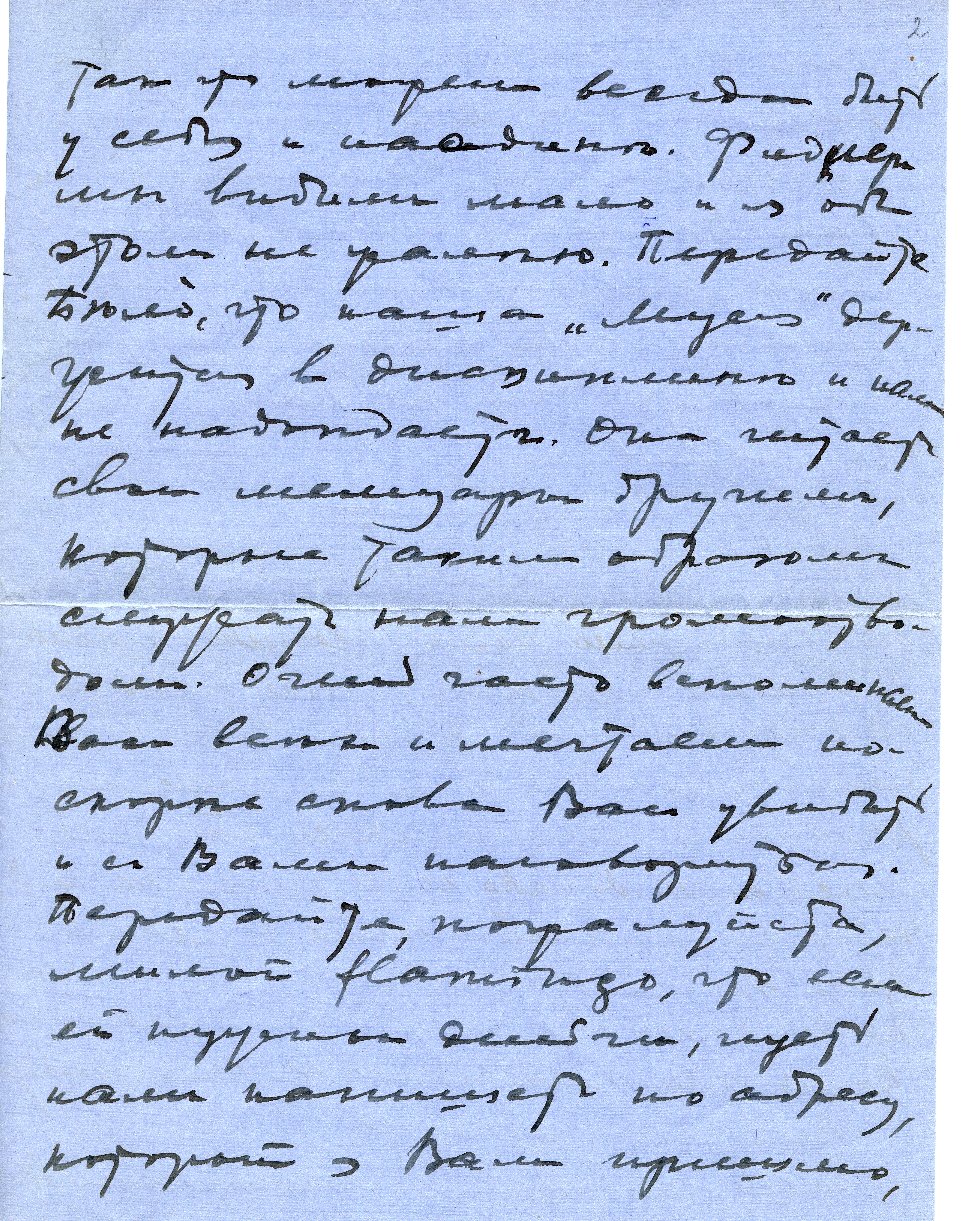 2
Так что можем всегда быть
у себя и наедине.
мы видели мало и я об
этом не жалею. Передайте
что наша „Муся“ дер-
жится в дисциплине и нам
не надоедает. Она читает
свои мемуары другим,
которые таким образом
служат нам громоотво-
дом. Очень часто вспоминаем
Вас всех и мечтаем по-
скорее снова Вас увидеть
и с Вами наговориться.
Передайте, пожалуйста,
милой flamingo, что если
ей нужны деньги, пусть
нам напишет по адресу,
который я Вам пришлю,